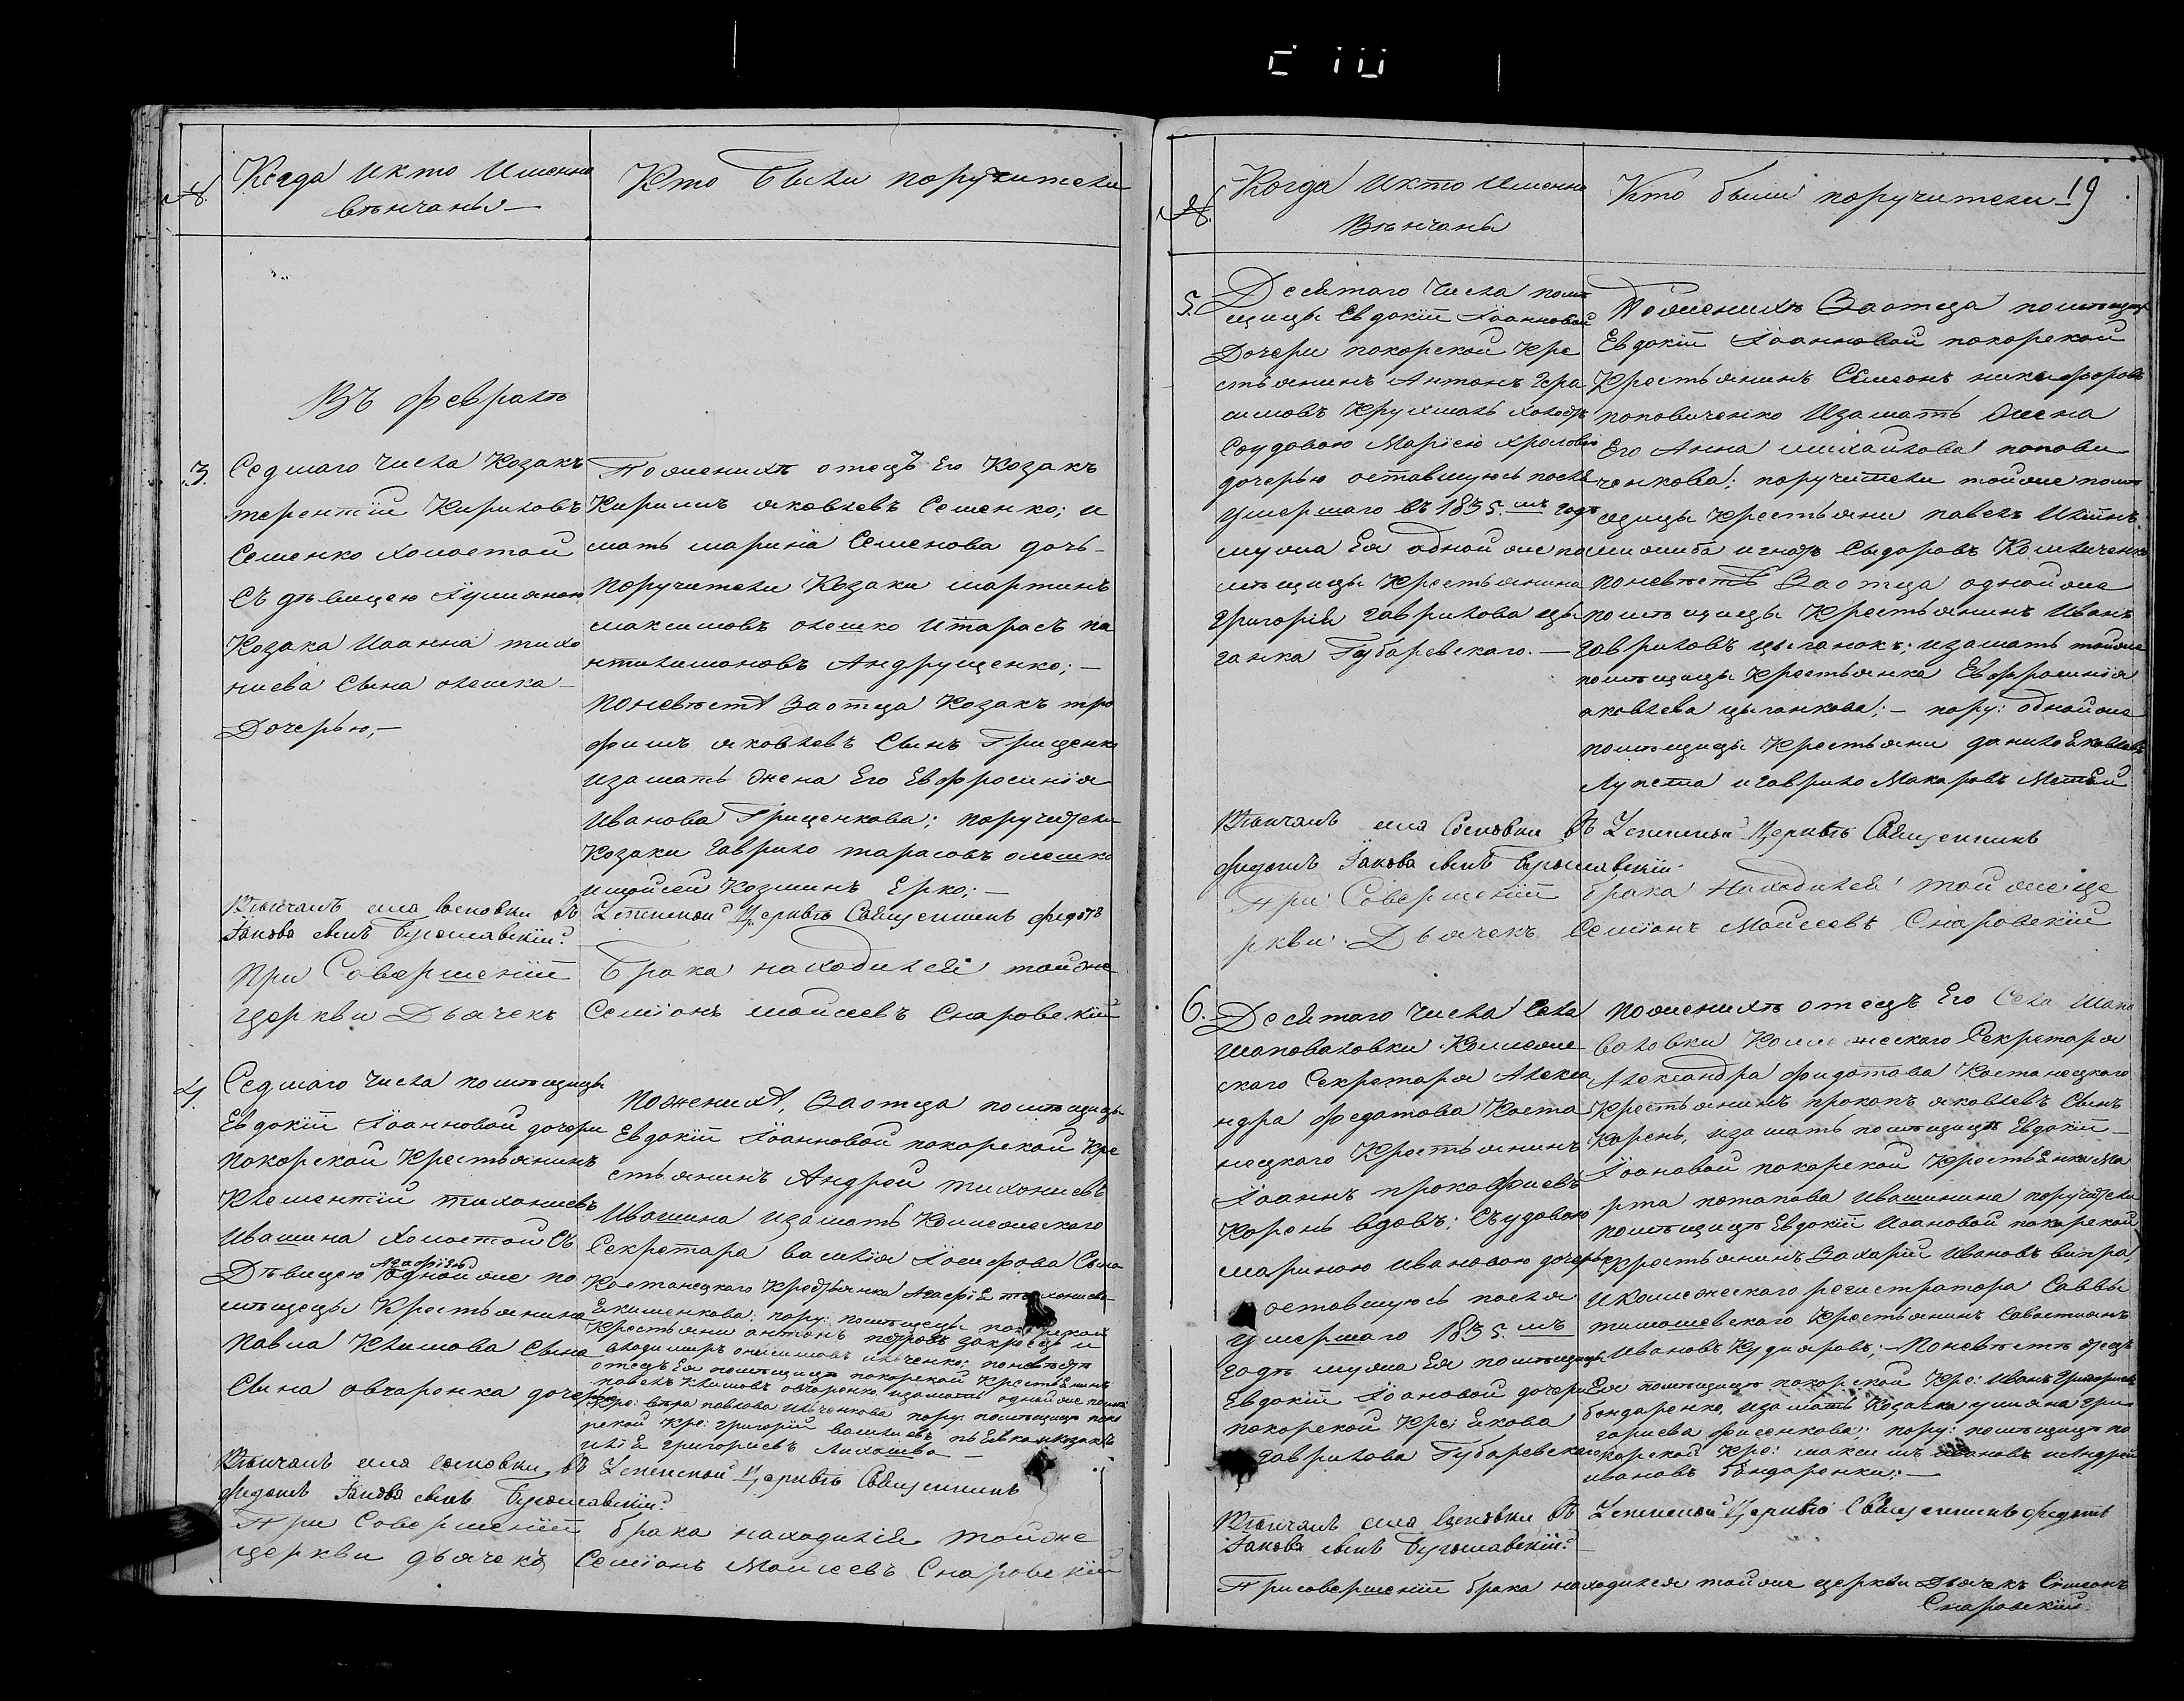 №.
Когда икто Именно
вѣнчаны
Кто были поручители
Въ февралѣ
3.
Седмаго числа Козакъ
терентій Кириловъ
Семенко холостой
Съ дѣвицею Хуміяною
Козака Иоанна тихо
ниева Сына олешка
Дочерью,
Поженихѣ отецъ Его Козакъ
Кирилъ яковлевъ Семенко; и
мать марина Семенова дочь
поручители Козаки мартинъ
максимовъ олешко итарасъ па
нтилимоновъ Андрущенко;
поневѣстѣ Заотца Козакъ тро
фимъ яковлевъ Сынъ Гриценко
изамать жена Его Евфросинія
Иванова Гриценкова; поручители
Козаки гаврило тарасовъ олешко
имойсей Козминъ Ерко;
Вѣнчалъ села Сосновки въ Успенской Церквѣ Священникъ федотъ
Іакова сынъ Бугославскій
При Совершеніи брака находился тойже
церкви Дьячекъ Семіонъ моисеевъ Снаровскій
4.
Седмаго числа помѣщицы
Евдокіи Іоанновой дочери
покорской Крестьянинъ
Климентій тихониевъ
Ивашина Холостой Съ
Агафіею
Дѣвицею одной же по
мѣщицы Крестьянина
павла Климова Сына
Сына овчаренка дочерью
Поженихѣ, Заотца помѣщицы
Евдокіи Іоанновой покорской кре
стьянинъ Андрей тихониевъ
Ивашина изамать Колежскаго
Секретара василія Іосифова Сына
Костанецкаго Крестьянка Агафіе тихониева
Екименкова; пору: помѣщицы покорской
Крестьяни антонъ петровъ и
владимиръ онисимовъ ильченко; поневѣстѣ
отецъ Ея помѣщицы покорской Крестьянинъ
павелъ Климовъ овчаренко, изамать одной же помѣщ
кре: вѣра павлова Ильченкова пору: помѣщицы поко
рской кре: григорій василиевъ
иліе григориевъ
Вѣнчалъ села Сосновки въ Успенской Церквѣ Священникъ
федотъ Іакова сынъ Бугославскій
При Совершеніи брака находился тойже
церкви дьячекъ Семіонъ Моисеевъ Снаровскій
№.
Когда икто Именно
Вѣнчаны
Кто были поручители
19
5.
Десятаго числа помѣ
щицы Евдокіи Іоанновой
Дочери покорской Кре
стьянинъ Антонъ Гера
симовъ Круглякъ холостъ
Соудовою Маріею Фроловою
дочерью оставшуюсь после
умершаго въ 1835.мъ годѣ
мужа Ея одной же по
мѣщицы Крестьянина
григорія гаврилова цы
ганка Губаревскаго.
Поженихѣ Заотца помѣщицы
Евдокіи Іоанновой покорской
Крестьянинъ Симеонъ никифоровъ
поповиченко Изамать жена
Его Анна михайлова попови
ченкова; поручители тойже помѣ
щицы Крестьяни павелъ
игнатъ Сыдоровъ
поневѣстѣ Заотца одной же
помѣщицы Крестьянинъ Иванъ
гавриловъ цыганокъ; изамать тойже
помѣщицы Крестьянка Евфросинія
яковлева цыганкова; пору: одной же
помѣщицы Крестьяни данило Яковлевъ
Лупета игаврило Макаровъ
Вѣнчалъ села Сосновки въ Успенской Церквѣ Священникъ
федотъ Іакова сынъ Бугославскій
При Совершеніи брака находился той же це
ркви Дьячекъ Семіонъ Моисеевъ Снаровскій
6.
Десятаго числа Села
шаповаловки Колеже
скаго Секретаря Алекса
ндра федотова Коста
нецкаго Крестьянинъ
Іоаннъ прокофиевъ
Корень вдовъ; Съудовою
мариною Ивановою дочерью
оставшуюсь после
умершаго 1835.мъ
годѣ мужа Ея помѣщицы
Евдокіи Іоановой дочери
покорской Кре: Якова
гаврилова Губаревскаго
поженихѣ отецъ Его Села Шапо
валовки Колежескаго Секретаря
Александра федотова Костанецкаго
Крестьянинъ прокопъ яковлевъ Сынъ
Корень, изамать помѣщицы Евдокіи
Іоановой покорской Крестьянка Ма
рта потапова Ивашинина поручители
помѣщицы Евдокіи Иоановой покорской
Крестьянинъ Захарій Ивановъ
Иколежескаго регистратора Саввы
тимошевскаго Крестьянинъ Савостианъ
Ивановъ Кудияровъ; Поневѣстѣ отецъ
Ея помѣщицы покорской Кре: Иванъ Григориевъ
бондаренко, изамать Козачка уліяна гри
гориева фесенкова; пору: помѣщицы по
корской Кре: максимъ Ивановъ иАндрей
ивановъ бондаренки;
Вѣнчалъ села Сосновки въ Успенской Церквѣ Священникъ федотъ
Іакова сынъ Бугославскій
Присовершеніи брака находился той же церкви Дьячекъ Симеонъ
Снаровскій